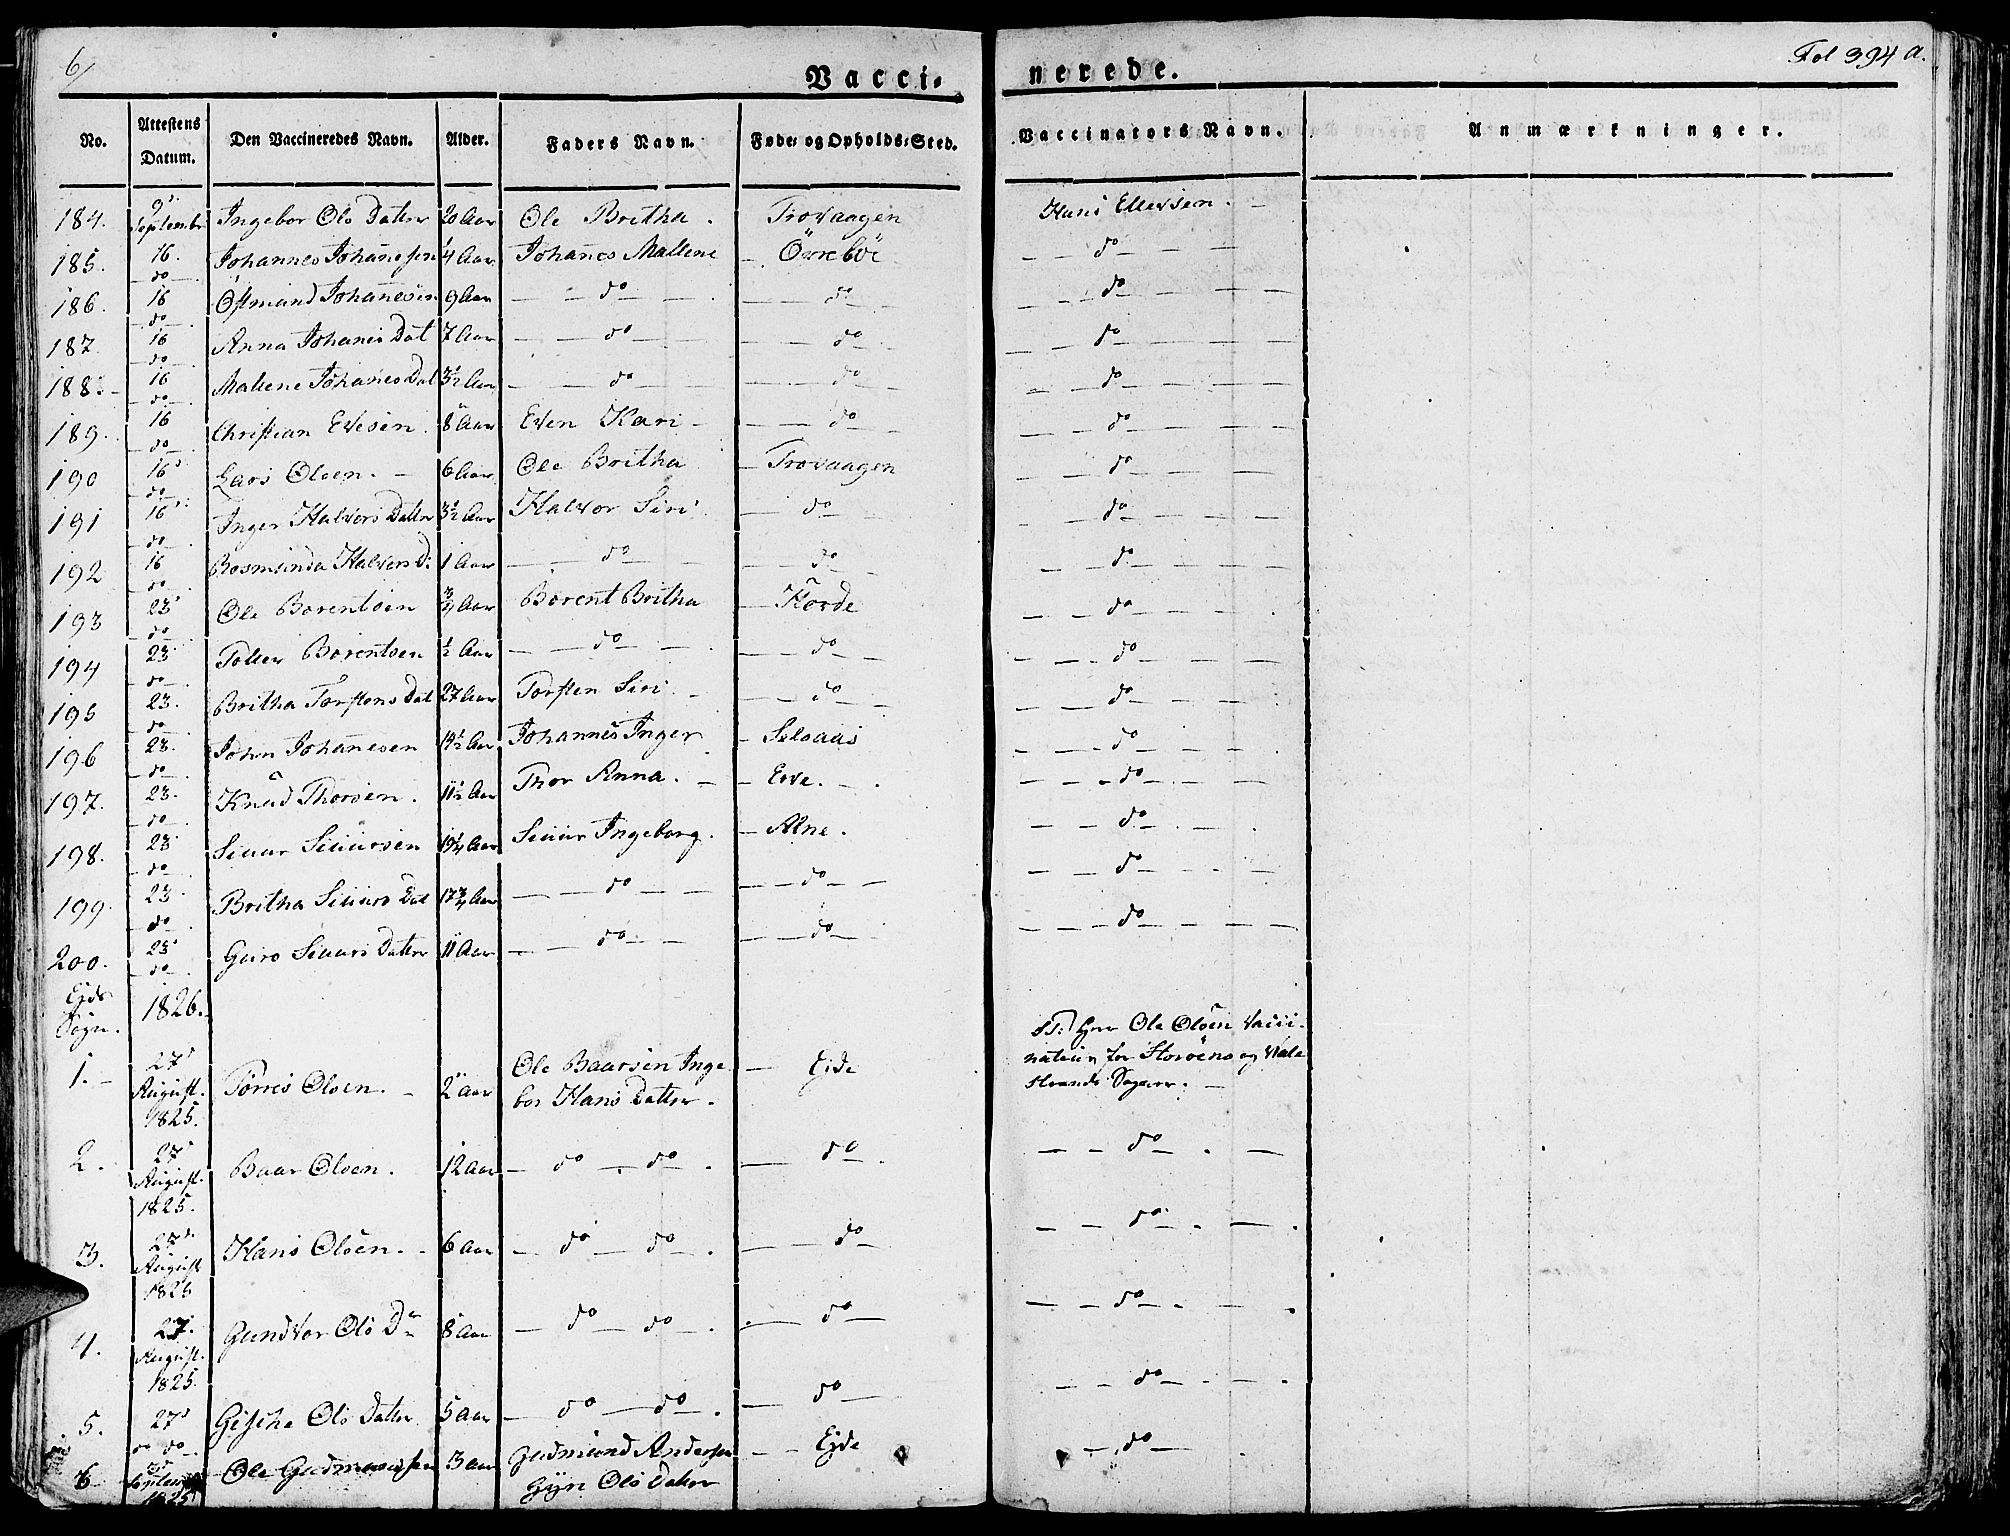 6/
Vacci- nerede.
Fol 394 a.
No. Attestens Datum. Den Vaccineredes Navn. Alder. Faders Navn. Føde- og Opholds-Sted. Vaccinators Navn. Anmærkninger.
184. 9 Septembr Ingebor Ols Datter 20 Aar Ole Britha. Trovaagen Hans Ellevsen.
185. 16. do Johannes Johannesen 1/4 Aar Johanes Mallene Örrebö do
186. 16 do Östmund Johanesen 9 Aar do do do
187. 16 do Anna Johanes Dat 7 Aar do do do
188. 16 do Malene Johanes Dat 3½ Aar do do do
189. 16 do Christian Evesen. 8 Aar Even Kari do do
190 16 do Lars Olsen. 6 Aar Ole Britha Trovaagen do
191 16 do Inger Halvors Datter 3½ Aar Halvor Siri do do
192 16 do Rosmunda Halvors D: 1 Aar do do do
193 23 do Ole Borentsen 3/4 Aar Borent Britha do
194 23 do Borentsen ½ Aar do do do
195 23. do Britha Torstens Dat 27 Aar Torsten Siri do do
196 23. do John Johanesen 14½ Aar Johannes Inger Selsaas do
197. 23. do Knud Thorsen. 11½ Aar Thor Anna. do
198. 23 do Siuur Siuursen 19¼ Aar Siuur Ingeborg. Alne. do
199 23 do Britha Siuurs Dat 17¾ Aar do do do
200. 23 do Guro Siuurs Datter 11 Aar do do do
Ejds Sogn. 1826.
1. 27 August. 1825. Torris Olsen. 2 Aar Ole Baarsen Inge bor Hans Datter. Ejde Ole Olsen Vacci- nateur for Storöens og Vale strands Sogner.
2. 27 August. 1825. Baar Olsen. 12 Aar do do. do. do
3. 27 August 1825 Hans Olsen. 6 Aar do do. do do
4. 27. August. 1825. Gundvor Ols Dr 8 Aar do do. do do
5. 27 do Ols Datter 5 Aar do do. do do
6 Septemb 1825 Ole Gudmundsen 3 Aar Gudmund Andersen Gyri Ols Datter Ejde do